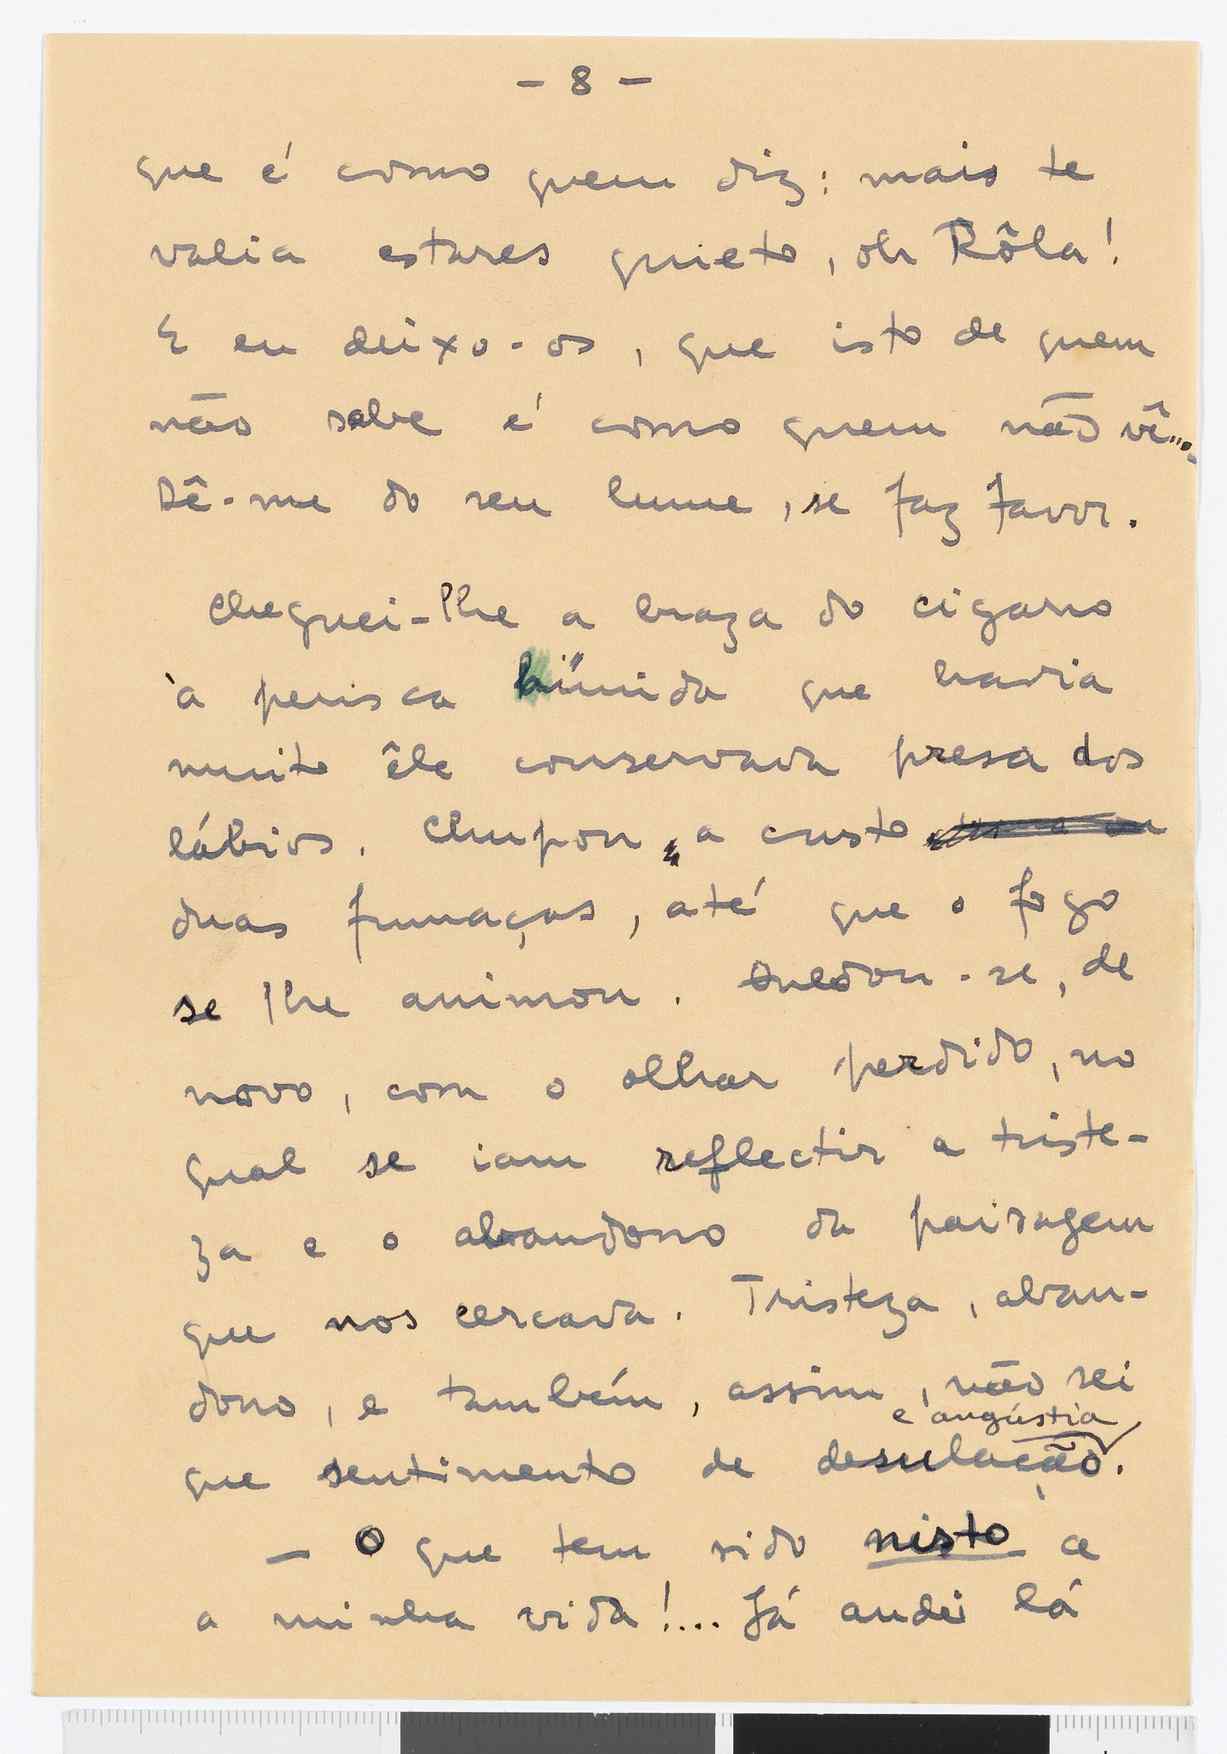 - 8 -
que é como quem diz: mais te
valia estares quieto, oh Rôla!
E eu deixo-os, que isto de quem
não sabe é como quem não vê...
Dê-me do seu lume, se faz favor.
Cheguei-lhe a braza do cigarro
à perisca húmida que havia
muito êle conservava presa dos
lábios. Chupou, a custo
duas fumaças, até que o fogo
se lhe animou. Quedou-se, de
novo, com o olhar perdido, no
qual se iam reflectir a triste-
za e o abandono da paisagem
que nos cercava. Tristeza, aban-
dono, e também, assim, não sei
e angústia
que sentimento de desolação.
— O que tem sido nisto a
a minha vida!... Já andei lá